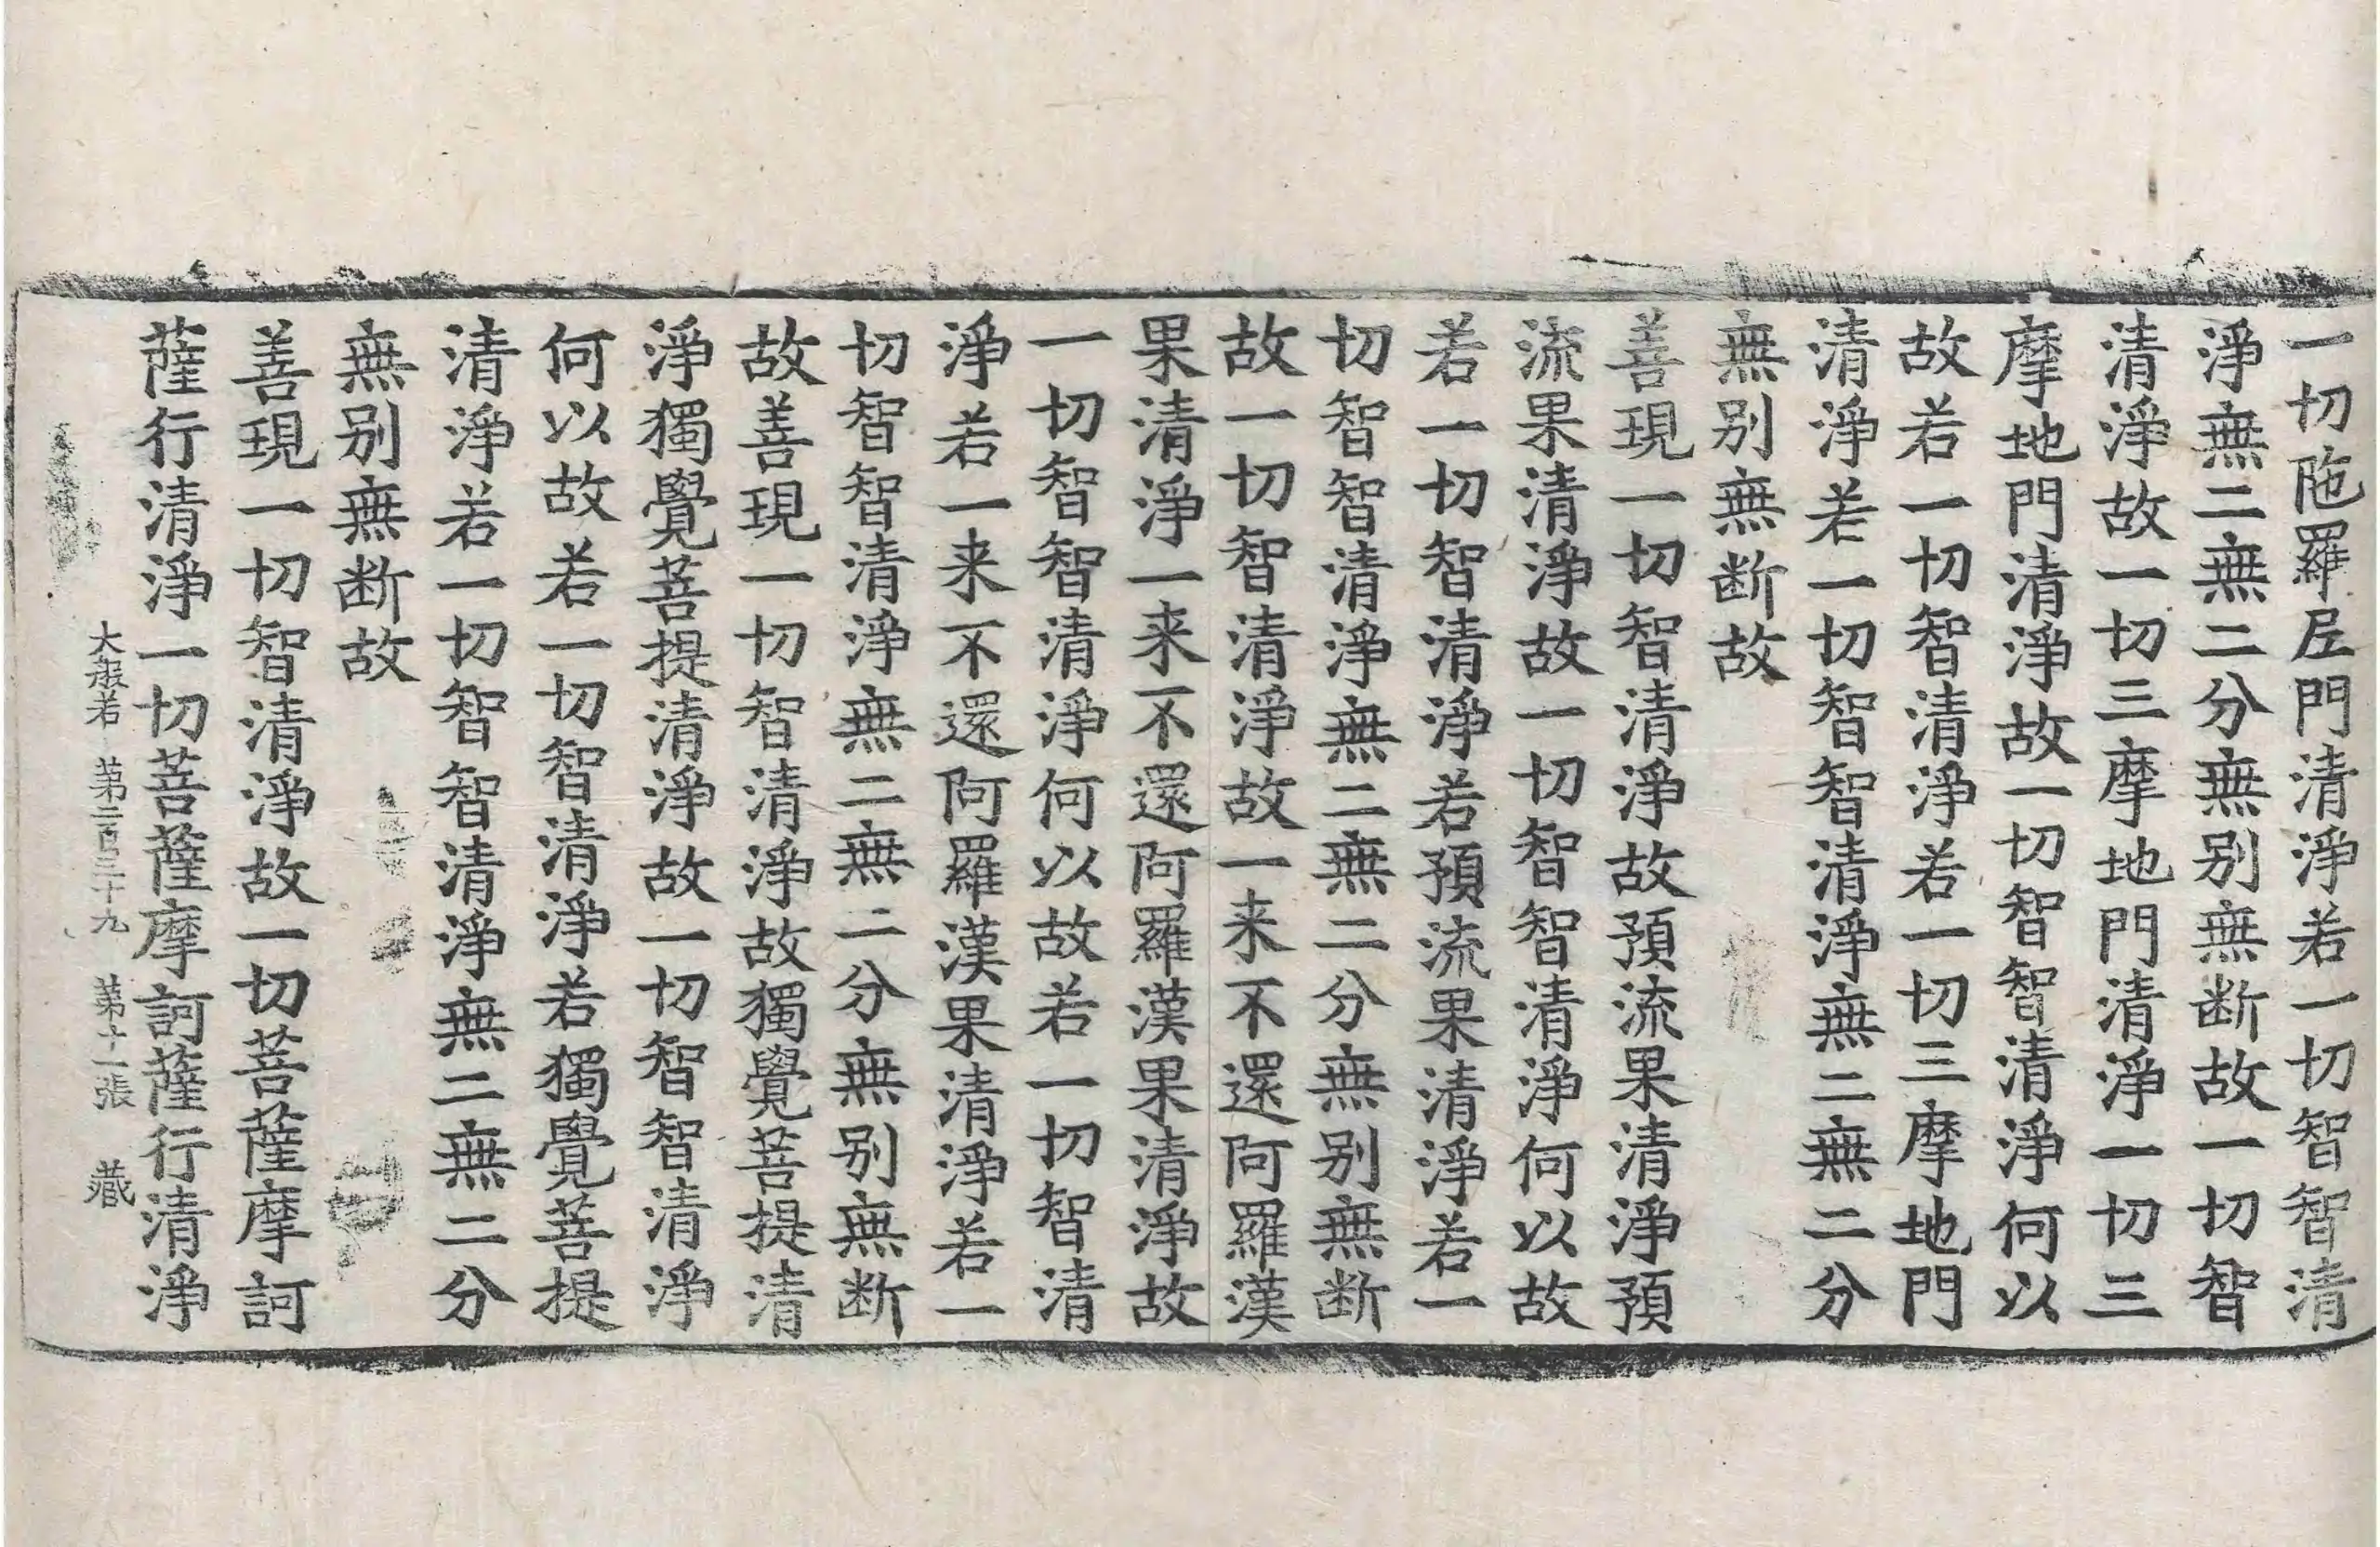 一切陁羅尼門清淨若一切智智清
淨無二無二分無別無断故一切智
清淨故一切三摩地門清淨一切三
摩地門清淨故一切智智清淨何以
故若一切智清淨若一切三摩地門
清淨若一切智智清淨無二無二分
無別無断故
善現一切智清淨故預流果清淨預
流果清淨故一切智智清淨何以故
若一切智清淨若預流果清淨若一
切智智清淨無二無二分無別無断
故一切智清淨故一来不還阿羅漢
果清淨一来不還阿羅漢果清淨故
一切智智清淨何以故若一切智清
淨若一来不還阿羅漢果清淨若一
切智智清淨無二無二分無別無断
故善現一切智清淨故獨覺菩提清
淨獨覺菩提清淨故一切智智清淨
何以故若一切智清淨若獨覺菩提
清淨若一切智智清淨無二無二分
無別無断故
善現一切智清淨故一切菩薩摩訶
薩行清淨一切菩薩摩訶薩行清淨
大般若 第二百三十九 第十一張 藏